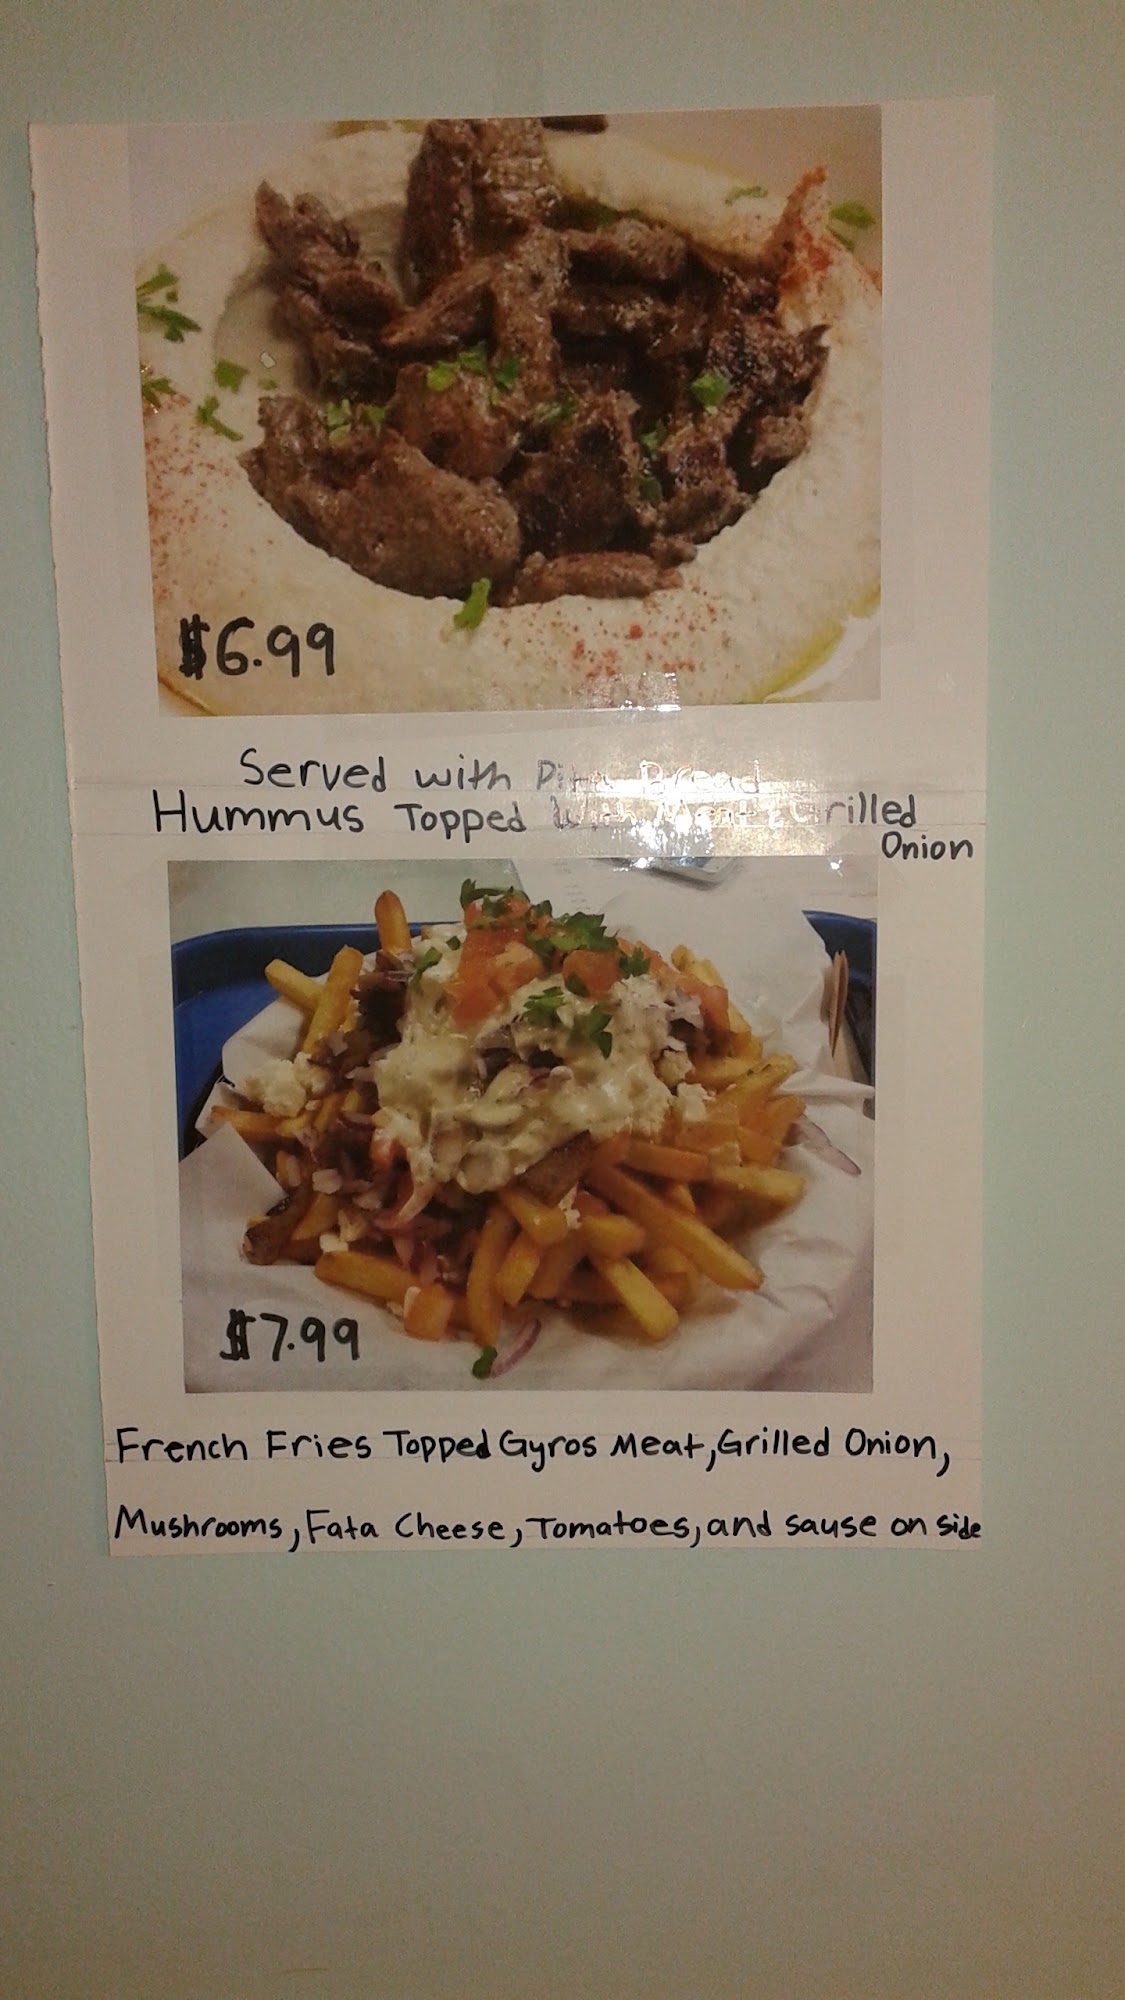 $6.99
Served with Pita Bread
Hummus Topped With Meat & Grilled
Onion
$7.99
French Fries Topped Gyros Meat, Grilled Onion,
Mushrooms, Fata Cheese, Tomatoes, and sause on side